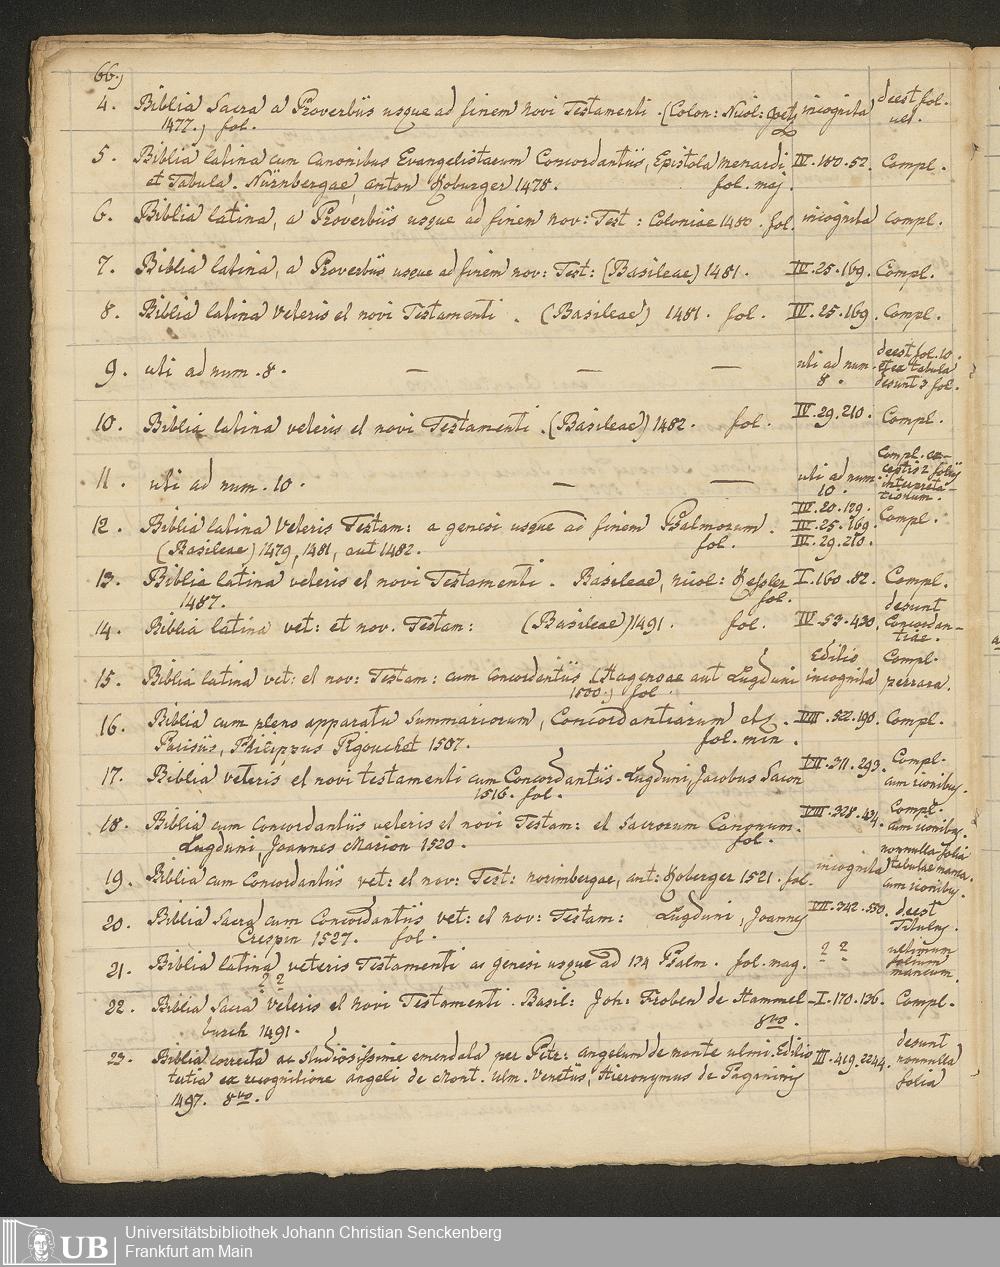 66.)
4. Biblia Sacra a Proverbiis usque ad finem novi Testamenti. (Colon: Nicol: Goetz incognita deest fol.
1477., fol. ult.
5. Biblia latina cum Canonibus Evangelistarum Concordantiis, Epistola menardi IV. 180. 52. Compl.
et Tabula. Nürnbergae, anton Koburger 1478. fol. maj.
6. Biblia latina, a Proverbiis usque ad finem nov: Test: Coloniae 1480. fol. incognita Compl.
7. Biblia latina, a Proverbiis usque ad finem nov: Test: (Basileae) 1481. IV. 25. 169. Compl.
8. Biblia latina veteris et novi Testamenti. (Basileae) 1481. fol. IV. 25. 169. Compl.
9. uti ad num. 8. — — — uti ad num. 8. deest fol. 10.
et ex tabula
desunt 3 fol.
10. Biblia latina veteris et novi Testamenti. (Basileae) 1482. fol. IV. 29. 210. Compl.
11. uti ad num. 10. — — uti ad num. 10. Compl. ex-
ceptis 2 foliis
interpreta-
tiorum.
12. Biblia latina Veteris Testam: a genesi usque ad finem Psalmorum. IV. 20. 129. Compl.
IV. 25. 169.
(Basileae) 1479, 1481, aut 1482. fol. IV. 29. 210.
13. Biblia latina veteris et novi Testamenti. Basileae, nicol: Kessler I. 160. 82. Compl.
1487. fol.
14. Biblia latina vet: et nov. Testam: (Basileae) 1491. fol. IV. 53. 430. desunt
Concordan-
tiae.
15. Biblia latina vet: et nov: Testam: cum Concordantiis (Hagenoae aut Lugduni Editio incognita Compl.
1500., fol. perrara.
16. Biblia cum pleno apparatu Summariorum, Concordantiarum etc. VIII. 52. 190. Compl.
Parisiis, Philippus Pigouchet 1507. fol. min.
17. Biblia veteris et novi testamenti cum Concordantiis. Lugduni, Jacobus Sacon VII. 311. 293. Compl.
1516. fol. cum iconibus.
18. Biblia cum Concordantiis veteris et novi Testam: et Sacrorum Canonum. VIII. 328. 434. Compl.
Lugduni, Joannes Marion 1520. fol. cum iconibus.
19. Biblia cum Concordantiis vet: et nov: Test: norimbergae, ant: Koberger 1521. fol. incognita nonnulla folia
tabulae manca.
cum iconibus.
20. Biblia Sacra cum Concordantiis vet: et nov: Testam: Lugduni, Joannes VII. 342. 550. deest
Crespin 1527. fol. Titulus.
21. Biblia latina veteris Testamenti a genesi usque ad 134 Psalm. fol. mag. ? ? ultimum
? ? folium
mancum.
22. Biblia Sacra Veteris et Novi Testamenti. Basil: Joh: Froben de Hammel- I. 170. 136. Compl.
burch 1491. 8vo.
23. Biblia correcta ac studiosissime emendata per Petr: angelum de monte ulmi. Editio III. 419. 2244. desunt
tertia ex recognitione angeli de Mont. ulm. Venetiis, Hieronymus de Paganinis nonnulla
1497. 8vo. folia
Universitätsbibliothek Johann Christian Senckenberg
Frankfurt am Main
UB